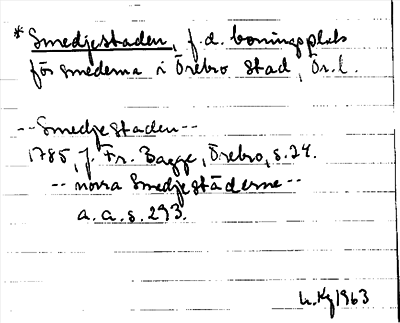 * Smedjestaden, f.d. boningsplats
för smederna i Örebro stad, Ör.l.
--Smedjestaden--
1785, J. Fr. Bagge, Örebro, s. 24.
-- norra Smedjestäderne--
a.a.s. 293.
1963